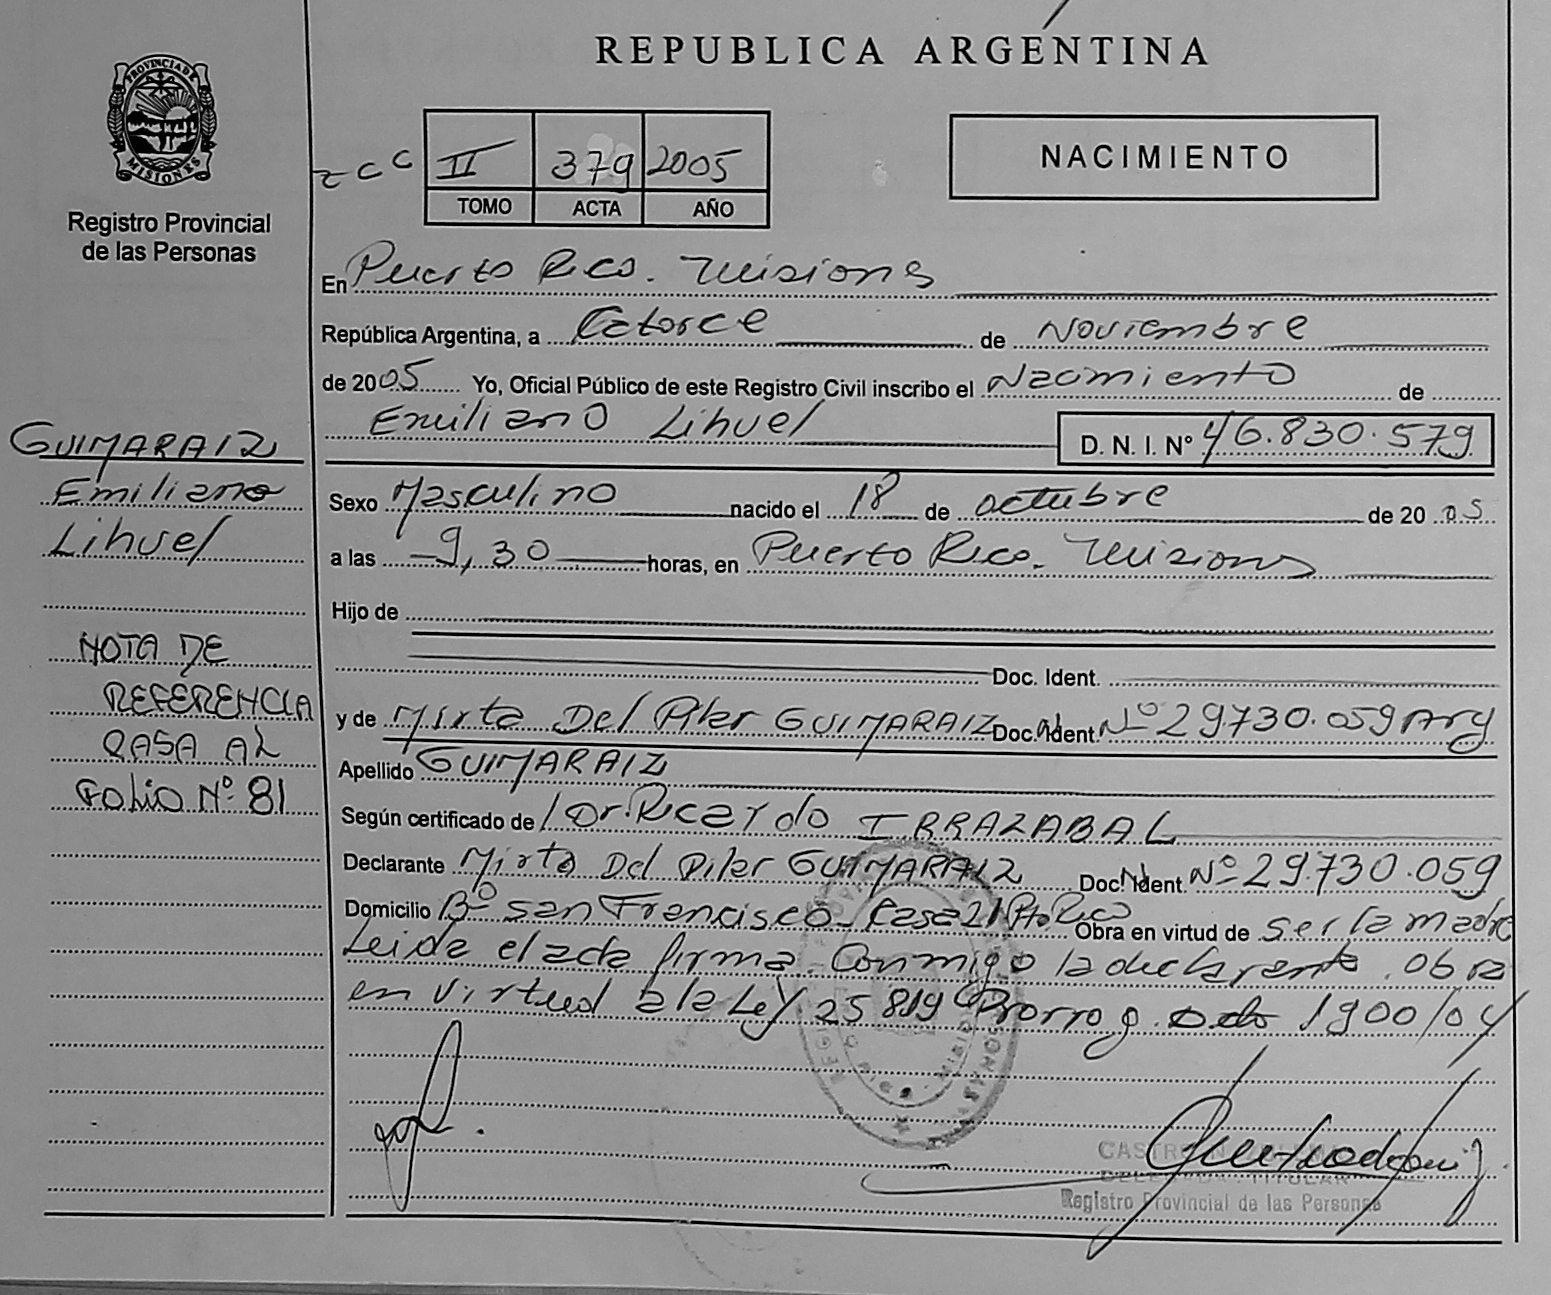 REPUBLICA ARGENTINA
PROVINCIA DE
MISIONES
Registro Provincial
de las Personas
II 379 2005
TOMO ACTA AÑO
NACIMIENTO
En Puerto Rico. Misiones
República Argentina, a Catorce de Noviembre
de 2005 Yo, Oficial Público de este Registro Civil inscribo el Nacimiento de
Emiliano Lihuel D. N. I. Nº 46.830.579
GUIMARAIZ
Emiliano
Lihuel
NOTA DE
REFERENCIA
PASA AL
FOLIO Nº 81
Sexo Masculino nacido el 18 de octubre de 2005
a las 9,30 horas, en Puerto Rico. Misiones
Hijo de
Doc. Ident.
y de Mirta Del Pilar GUIMARAIZ Doc. Ident. Nº 29730.059 Arg
Apellido GUIMARAIZ
Según certificado de Dr. Ricardo IRRAZABAL
Declarante Mirta Del Pilar GUIMARAIZ Doc. Ident. Nº 29.730.059
Domicilio Bº San Francisco - Casa 21 Pto Rico Obra en virtud de ser la madre
Leida el acta firma conmigo la declarante. Obra
en virtud a la Ley 25819 Prorrog. Dcto 1900/04
DELEGADA TITULAR
Registro Provincial de las Personas